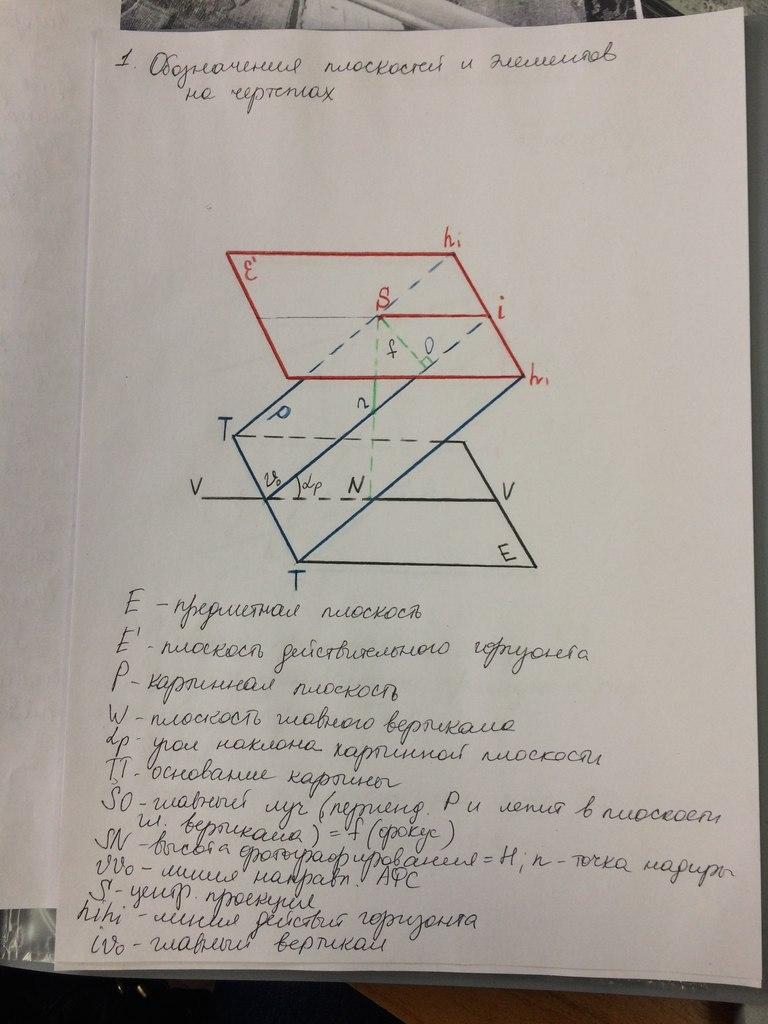 1. Обозначения плоскостей и элементов
на чертежах
hi
E'
S
i
f
O
hi
n
T
P
v₀
αp
N
V
V
E
T
E - предметная плоскость
E' - плоскость действительного горизонта
P - картинная плоскость
W - плоскость главного вертикала
αp - угол наклона картинной плоскости
TT - основание картины
SO - главный луч (перпенд. P и лежит в плоскости
гл. вертикала) = f (фокус)
SN - высота фотографирования = H; n - точка надира
VV₀ - линия направл. АФС
S - центр. проекция
hihi - линия действит горизонта
iv₀ - главный вертикал